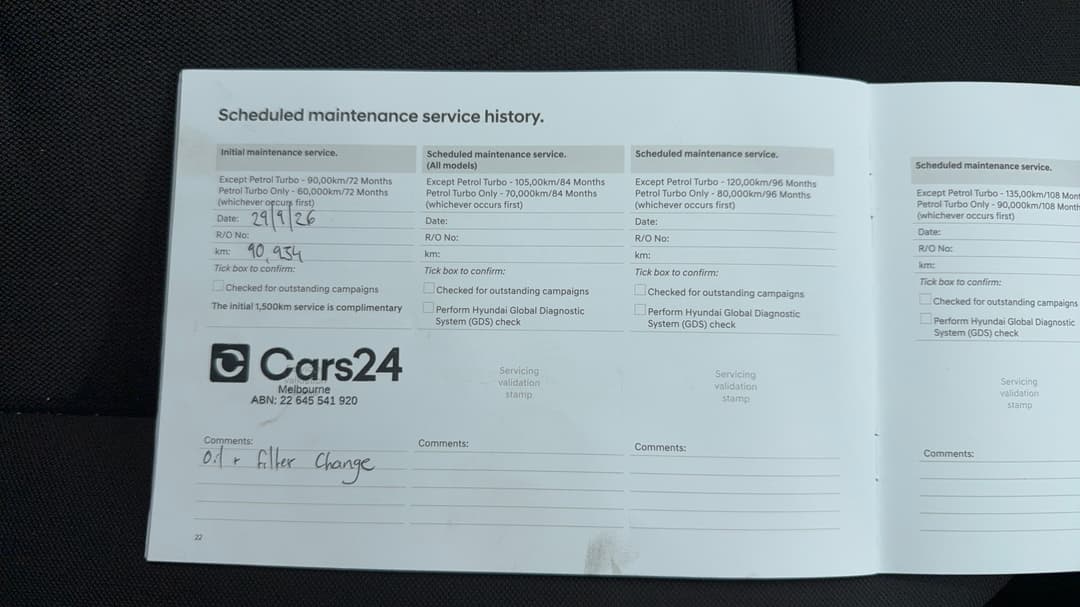 Scheduled maintenance service history.
Initial maintenance service.
Except Petrol Turbo - 90,00km/72 Months
Petrol Turbo Only - 60,000km/72 Months
(whichever occurs first)
Date: 29/9/26
R/O No:
km: 90,954
Tick box to confirm:
Checked for outstanding campaigns
The initial 1,500km service is complimentary
Cars24
Melbourne
ABN: 22 645 541 920
Comments:
Oil + filter Change
22
Scheduled maintenance service.
(All models)
Except Petrol Turbo - 105,00km/84 Months
Petrol Turbo Only - 70,000km/84 Months
(whichever occurs first)
Date:
R/O No:
km:
Tick box to confirm:
Checked for outstanding campaigns
Perform Hyundai Global Diagnostic
System (GDS) check
Servicing
validation
stamp
Comments:
Scheduled maintenance service.
Except Petrol Turbo - 120,00km/96 Months
Petrol Turbo Only - 80,000km/96 Months
(whichever occurs first)
Date:
R/O No:
km:
Tick box to confirm:
Checked for outstanding campaigns
Perform Hyundai Global Diagnostic
System (GDS) check
Servicing
validation
stamp
Comments:
Scheduled maintenance service.
Except Petrol Turbo - 135,00km/108 Mont
Petrol Turbo Only - 90,000km/108 Month
(whichever occurs first)
Date:
R/O No:
km:
Tick box to confirm:
Checked for outstanding campaigns
Perform Hyundai Global Diagnostic
System (GDS) check
Servicing
validation
stamp
Comments: